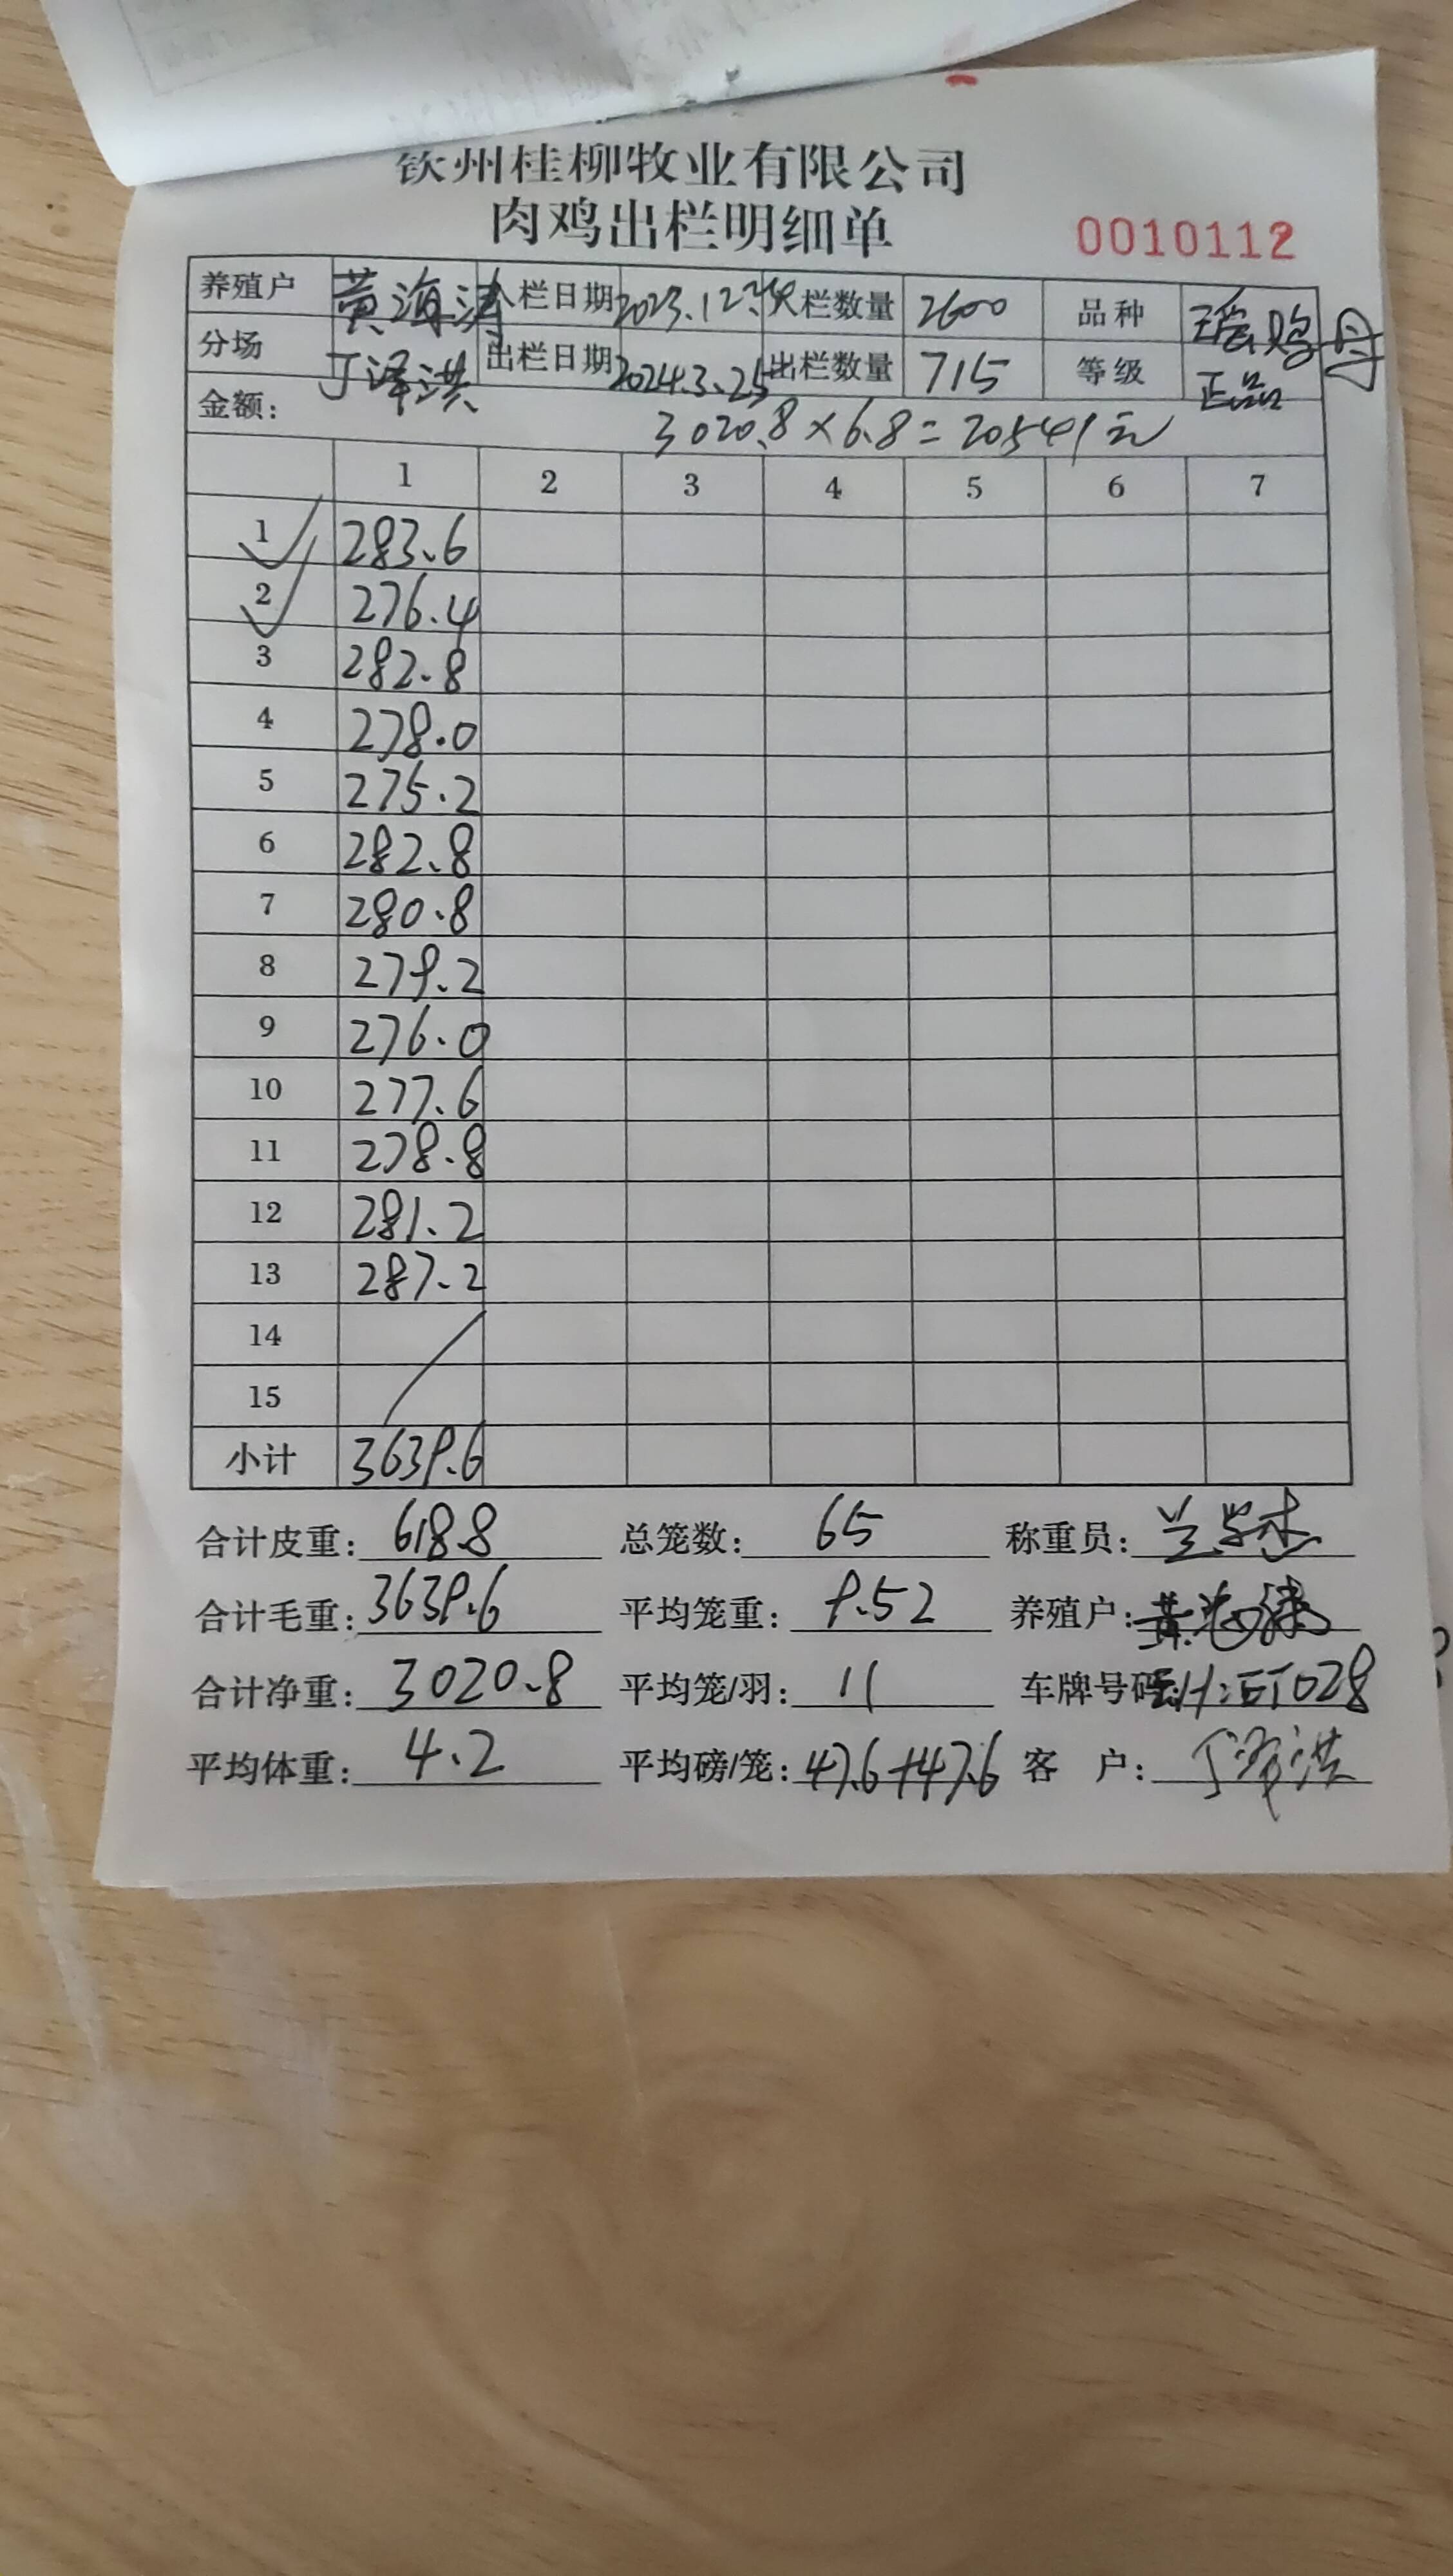 钦州桂柳牧业有限公司
肉鸡出栏明细单
0010112
养殖户 黄海涛 入栏日期 2023.12. 入栏数量 2600 品种 瑶鸡母
分场 丁泽洪 出栏日期 2024.3.25 出栏数量 715 等级 正品
金额: 3020.8×6.8=20541元
1 2 3 4 5 6 7
1 283.6
2 276.4
3 282.8
4 278.0
5 275.2
6 282.8
7 280.8
8 279.2
9 276.0
10 277.6
11 278.8
12 281.2
13 287.2
14
15
小计 3639.6
合计皮重: 618.8 总笼数: 65 称重员:
合计毛重: 3639.6 平均笼重: 9.52 养殖户: 黄海涛
合计净重: 3020.8 平均笼/羽: 11 车牌号码:
平均体重: 4.2 平均磅/笼: 47.6+47.6 客 户: 丁泽洪